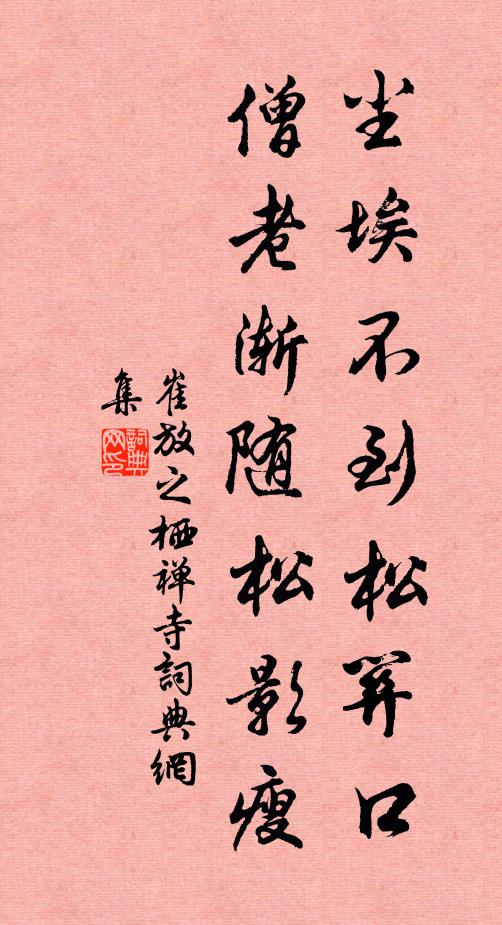 尘埃不到松关口
僧老渐随松影瘦
崔放之栖禅寺詞典網
集
詞典
网印